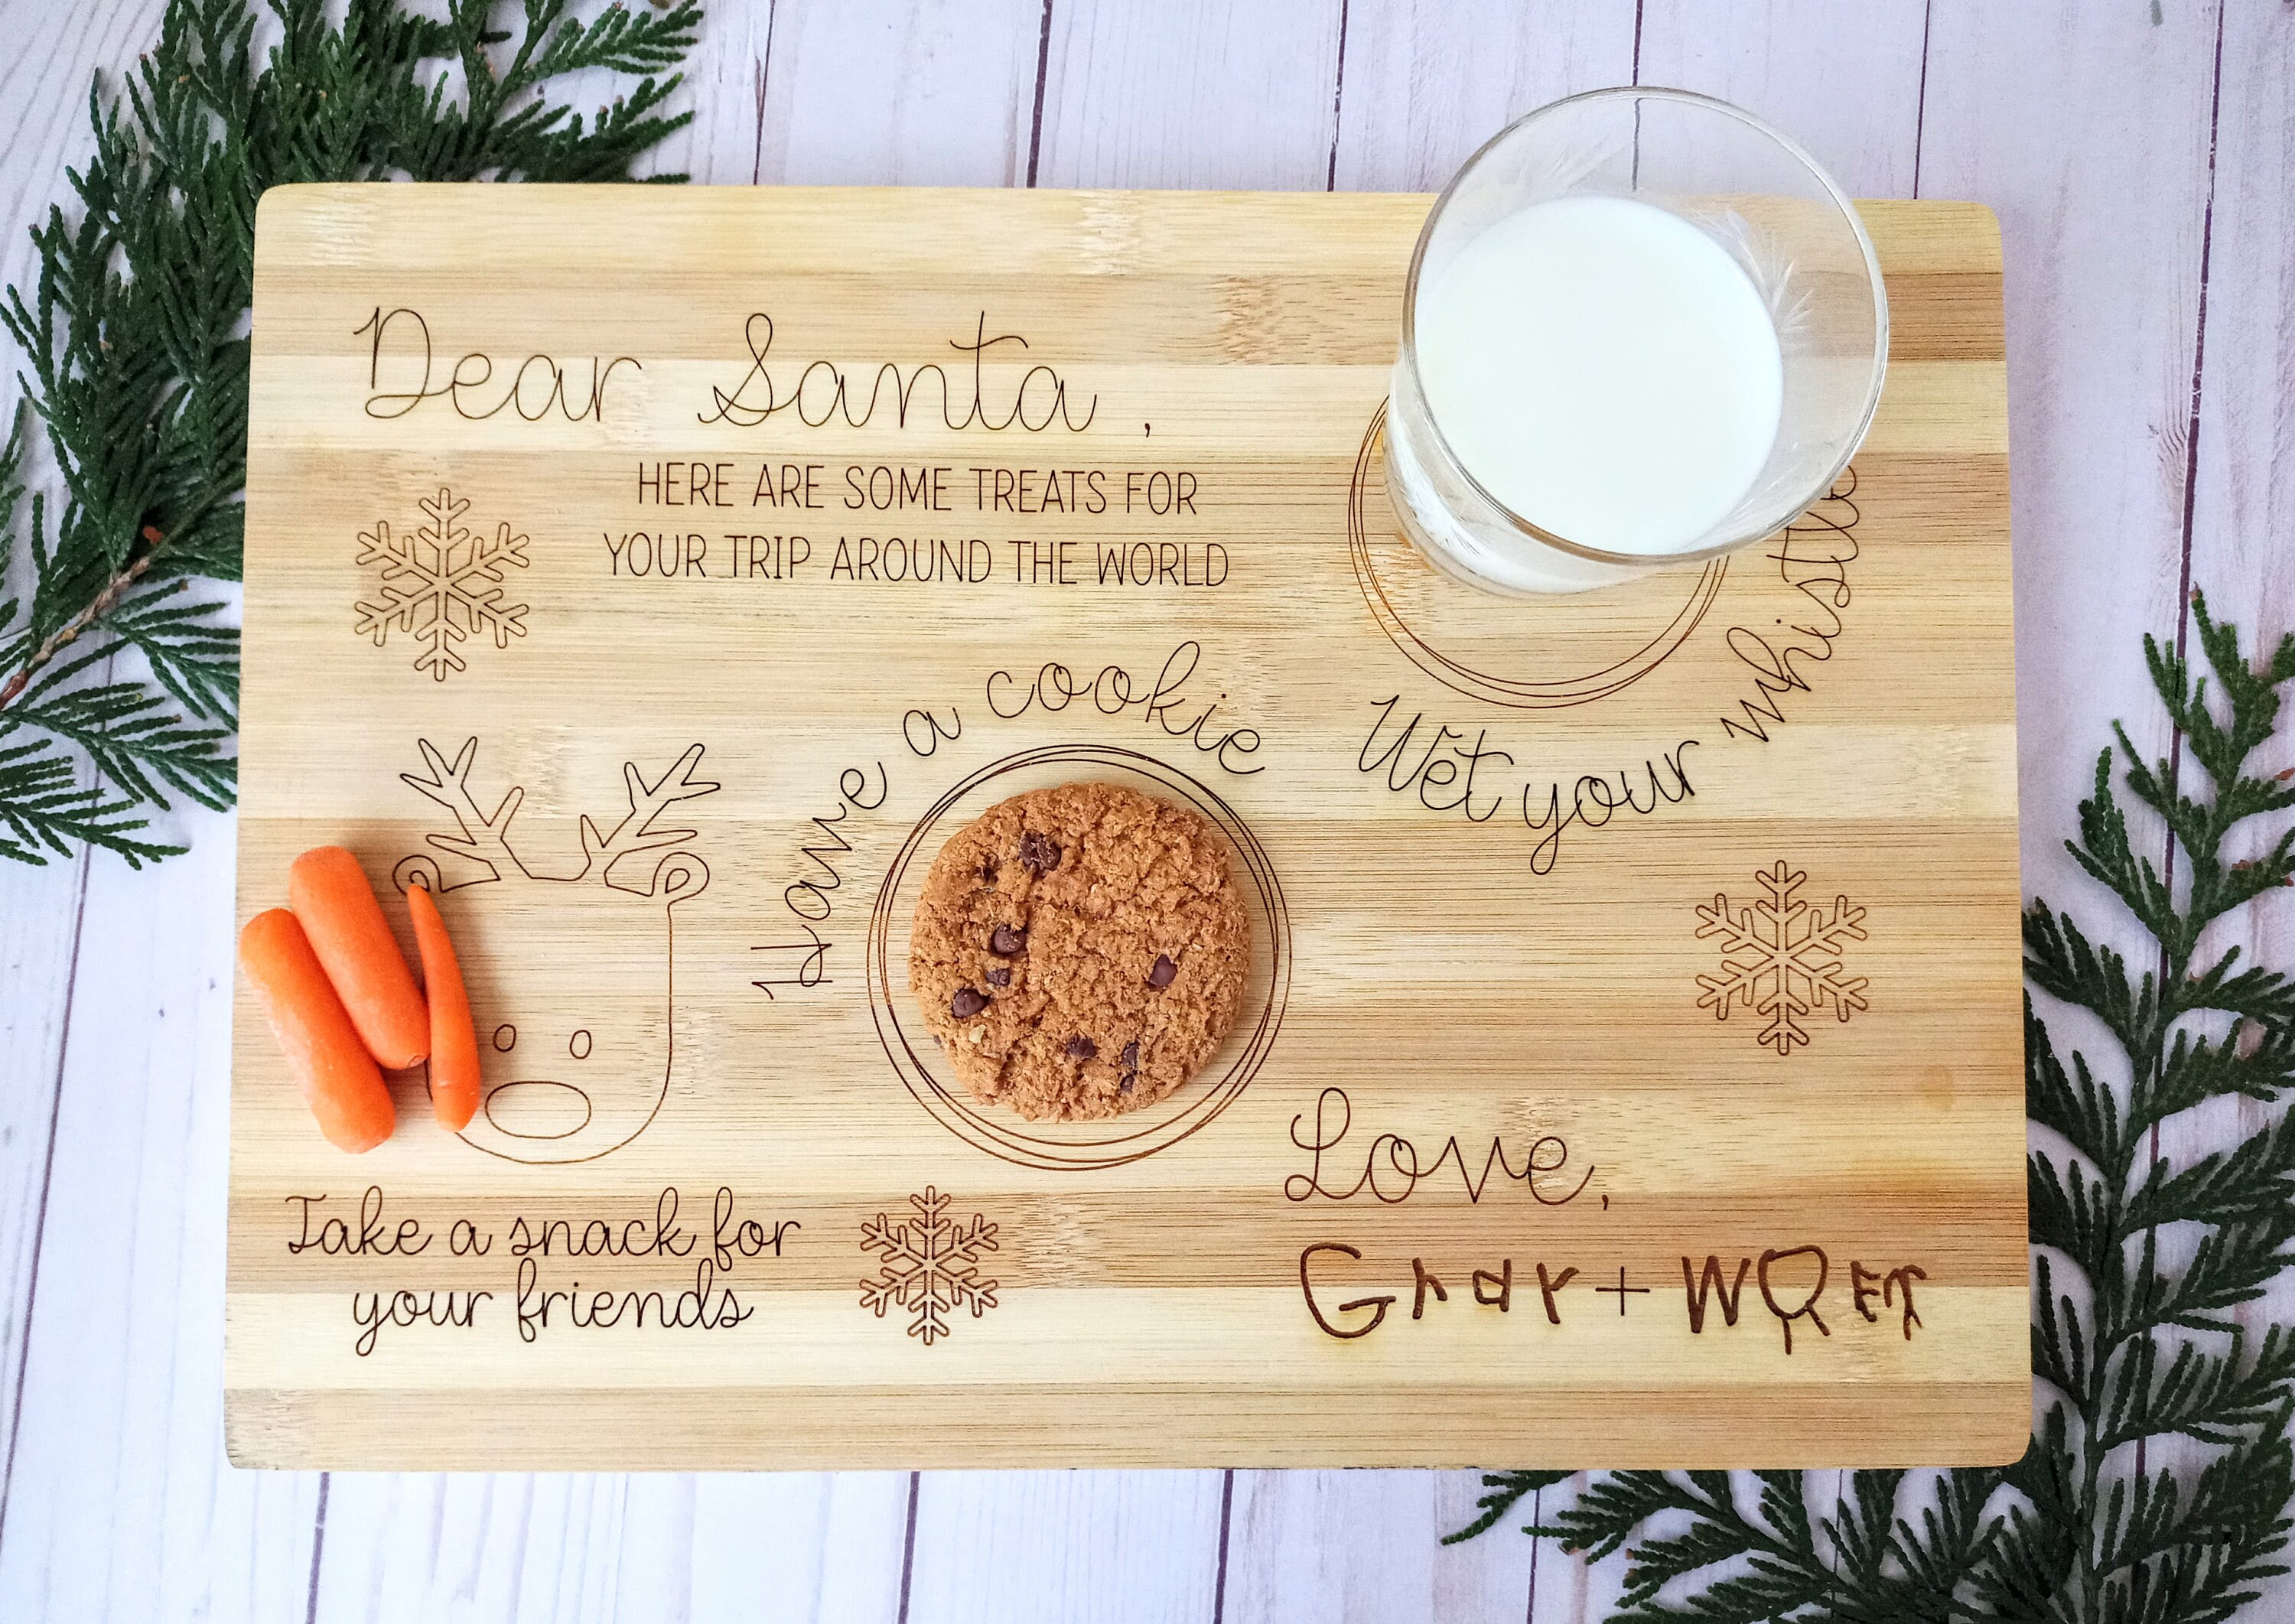 Dear Santa,
HERE ARE SOME TREATS FOR
YOUR TRIP AROUND THE WORLD
Have a cookie
Wet your whistle
Take a snack for
your friends
Love,
Gray +